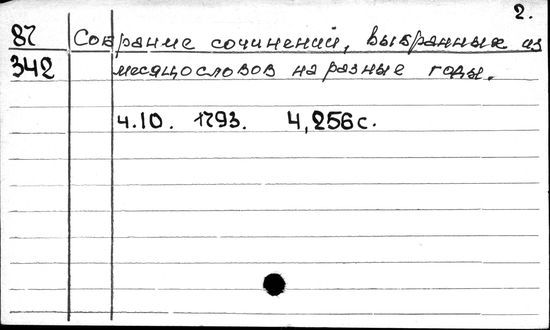 2.
87 Собрание сочинений, выбранных из
342 месяцословов на разные годы.
ч.10. 1793. 4,256с.